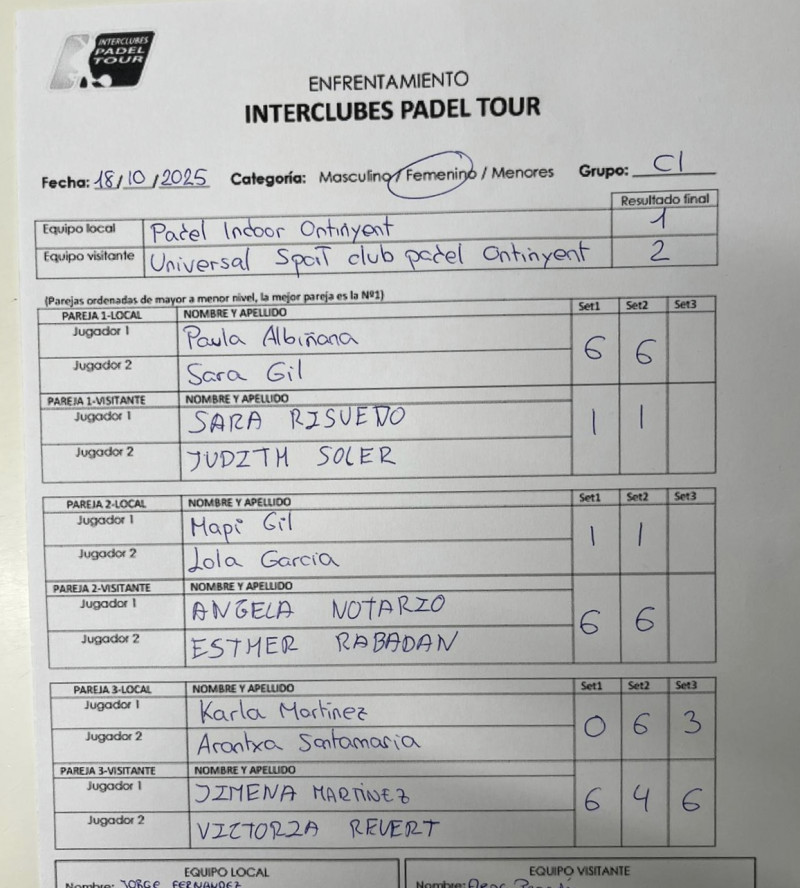 INTERCLUBES
PADEL
TOUR
ENFRENTAMIENTO
INTERCLUBES PADEL TOUR
Fecha: 18/10/2025 Categoría: Masculino / Femenino / Menores Grupo: C1
Resultado final
Equipo local Padel Indoor Ontinyent 1
Equipo visitante Universal Sport club padel Ontinyent 2
(Parejas ordenadas de mayor a menor nivel, la mejor pareja es la Nº1)
PAREJA 1-LOCAL NOMBRE Y APELLIDO Set1 Set2 Set3
Jugador 1 Paula Albiñana 6 6
Jugador 2 Sara Gil
PAREJA 1-VISITANTE NOMBRE Y APELLIDO
Jugador 1 SARA RISUEÑO 1 1
Jugador 2 JUDITH SOLER
PAREJA 2-LOCAL NOMBRE Y APELLIDO Set1 Set2 Set3
Jugador 1 Mapi Gil 1 1
Jugador 2 Lola Garcia
PAREJA 2-VISITANTE NOMBRE Y APELLIDO
Jugador 1 ANGELA NOTARIO 6 6
Jugador 2 ESTHER RABADAN
PAREJA 3-LOCAL NOMBRE Y APELLIDO Set1 Set2 Set3
Jugador 1 Karla Martinez 0 6 3
Jugador 2 Arantxa Santamaria
PAREJA 3-VISITANTE NOMBRE Y APELLIDO
Jugador 1 JIMENA MARTINEZ 6 4 6
Jugador 2 VICTORIA REVERT
EQUIPO LOCAL EQUIPO VISITANTE
Nombre: JORGE FERNANDEZ Nombre: